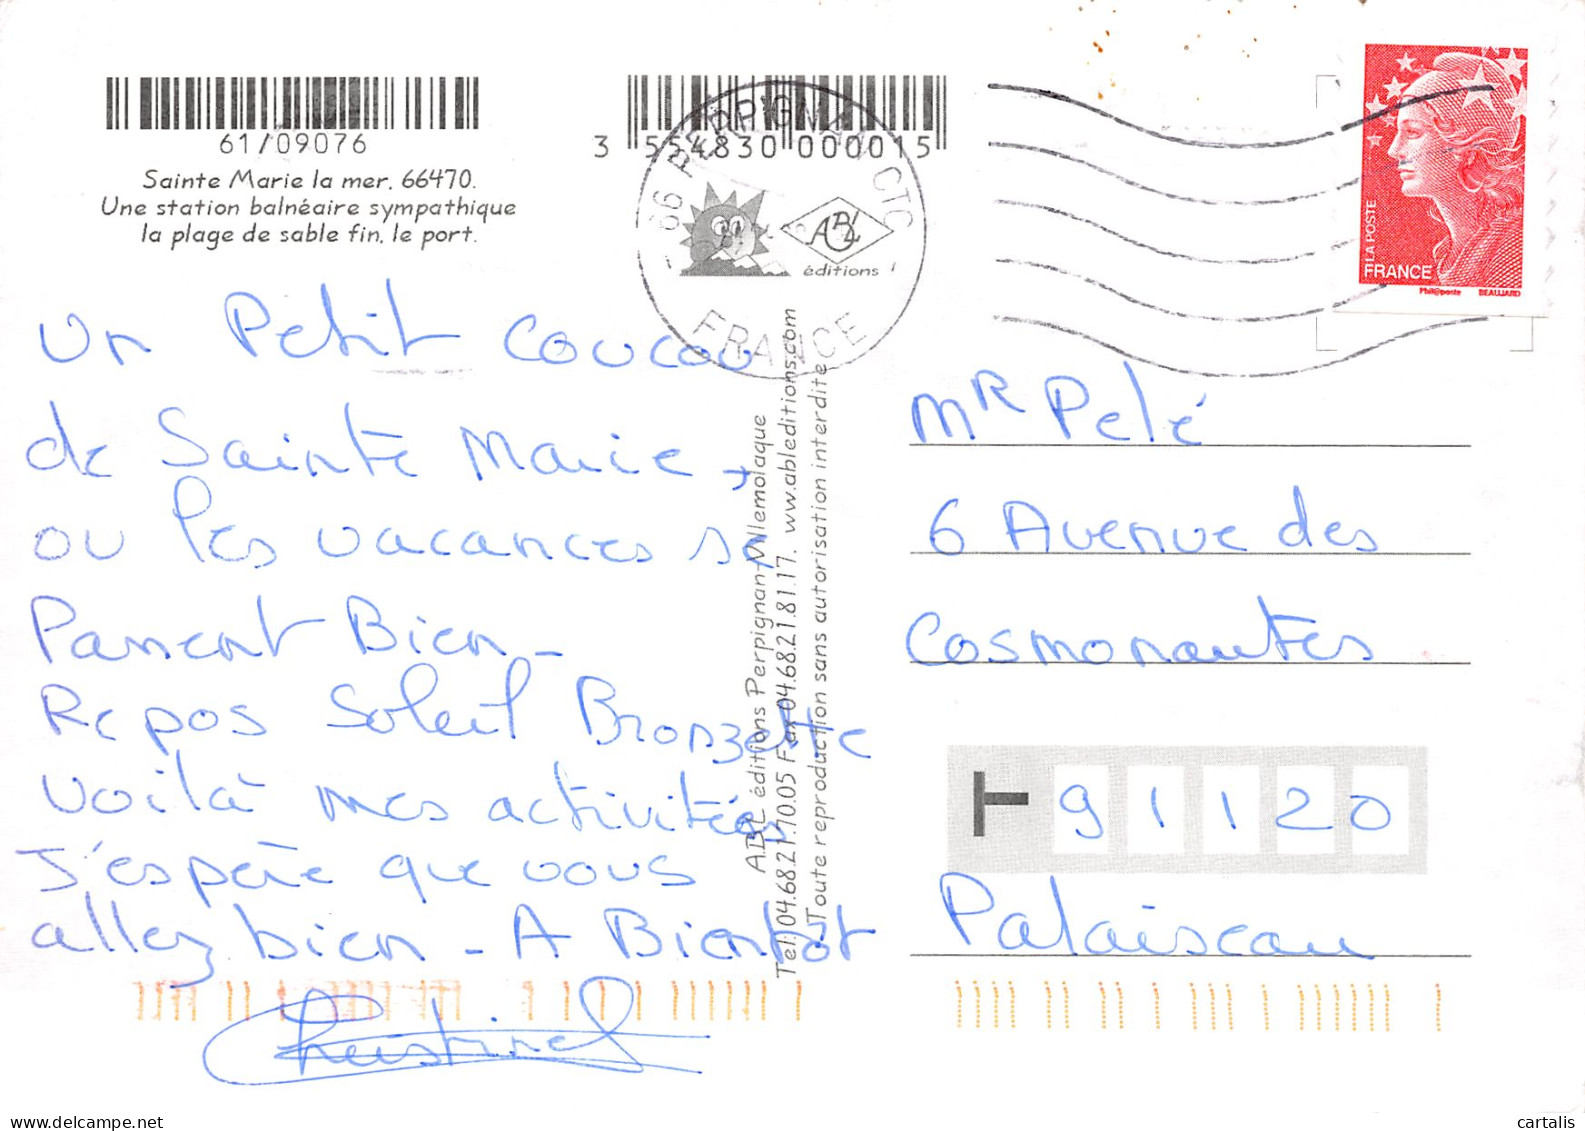 61/09076
Sainte Marie la mer, 66470.
Une station balnéaire sympathique
la plage de sable fin, le port.
3 554830 000015
66 PERPIGNAN CTC
FRANCE
ABL
éditions
LA POSTE
FRANCE
Phil@poste BEAUJARD
Un Petit Coucou
de Sainte Marie,
ou les vacances se
Passent Bien -
Repos Soleil Bronzette
Voilà mes activités
J'espère que vous
allez bien - A Bientôt
Christine
ABL éditions Perpignan-Villemolaque
Tel: 04.68.21.70.05 Fax 04.68.21.81.17. www.ableditions.com
Toute reproduction sans autorisation interdite
MR Pelé
6 Avenue des
Cosmonautes
91120
Palaiseau
cartalis